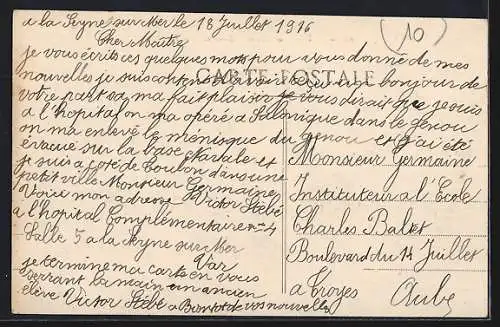 a la Seyne sur Mer le 18 Juillet 1916
10
Cher Maître
je vous écrits ces quelques mots pour vous donné de mes
CARTE POSTALE
nouvelles je suis content bonjour de
votre part sa ma fait plaisir je vous dirait que je suis
a l'hopital on ma opéré a Salonique dans le Genou
on ma enlevé le ménisque du genou et j'ai été
évacué sur la base Navale et
je suis a coté de Toulon dans une
petit ville Monsieur Germaine
Voici mon adresse Victor Stébé
a l'hopital Complémentaire n° 4
Salle 5 a la Seyne sur Mer
Var
je termine ma carte en vous
serrant la main un ancien
élève Victor Stébé a Bientot de vos nouvelles
Monsieur Germaine
Instituteur a l'Ecole
Charles Baltet
Boulevard du 14 Juillet
a Troyes
Aube